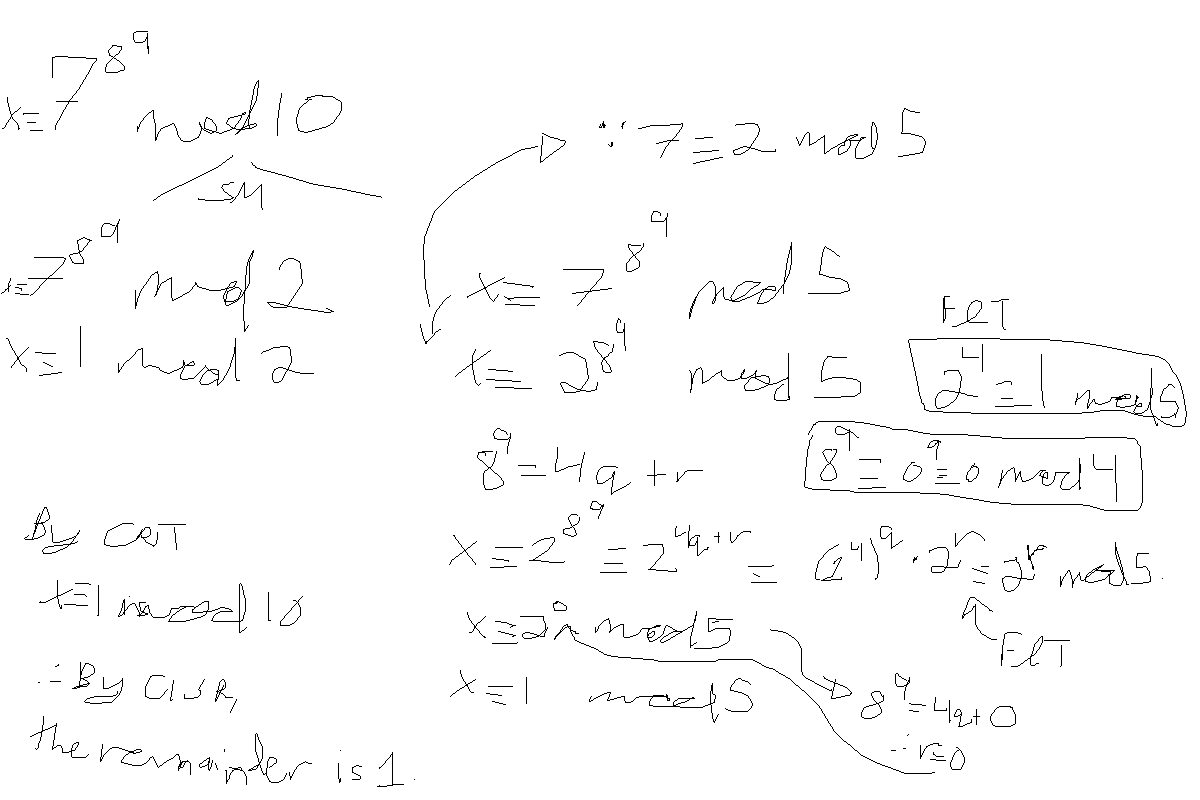 x≡7^8^9 mod 10
SM
x≡7^8^9 mod 2
x≡1 mod 2
∵ 7≡2 mod 5
x≡7^8^9 mod 5
x≡2^8^9 mod 5
FℓT
2^4≡1 mod 5
8^9=4q+r
8^9≡0^9≡0 mod 4
x≡2^8^9≡2^4q+r≡(2^4)^q·2^r≡2^r mod 5.
FℓT
x≡2^0 mod 5
x≡1 mod 5
8^9=4q+0
∴r=0
By CRT
x≡1 mod 10
∴By CISR,
the remainder is 1.